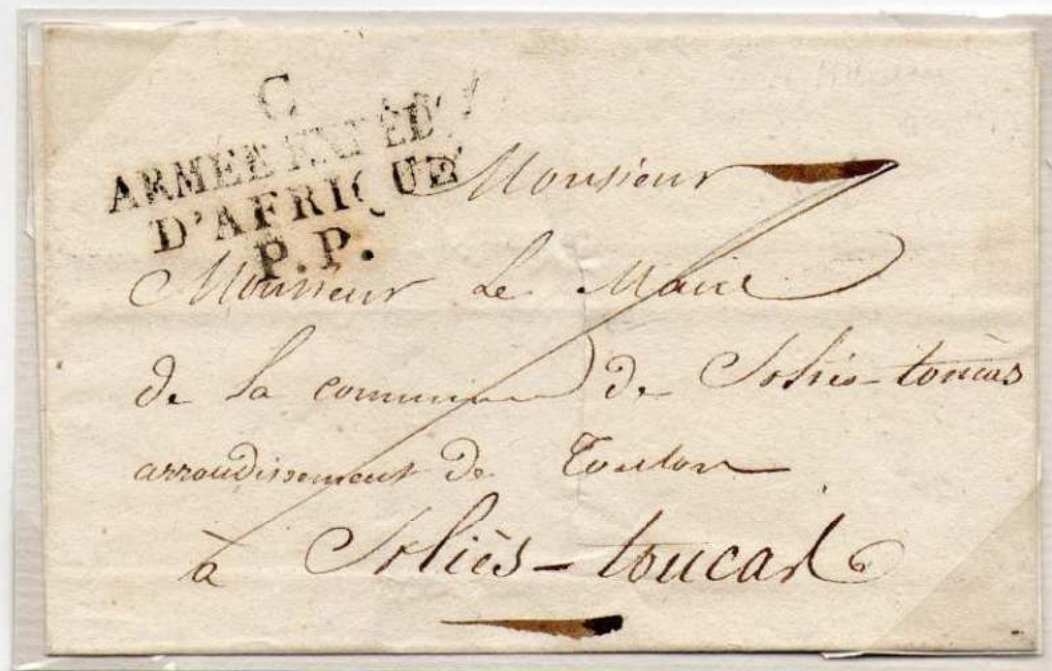 C
ARMÉE EXPÉD.
D'AFRIQUE
P.P.
Monsieur
Monsieur Le Maire
de la commune de Soliès-toucas
arrondissement de Toulon
à Soliès-toucas